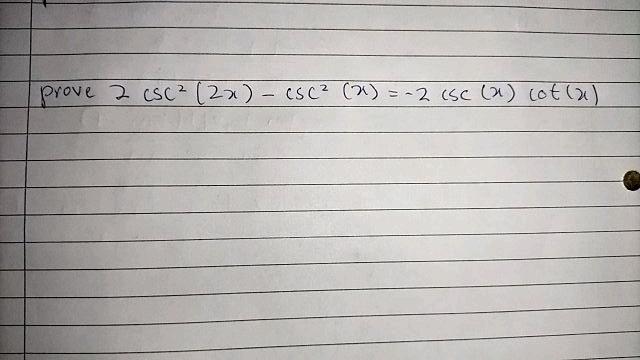 prove 2 csc² (2x) - csc² (x) = -2 csc (x) cot(x)